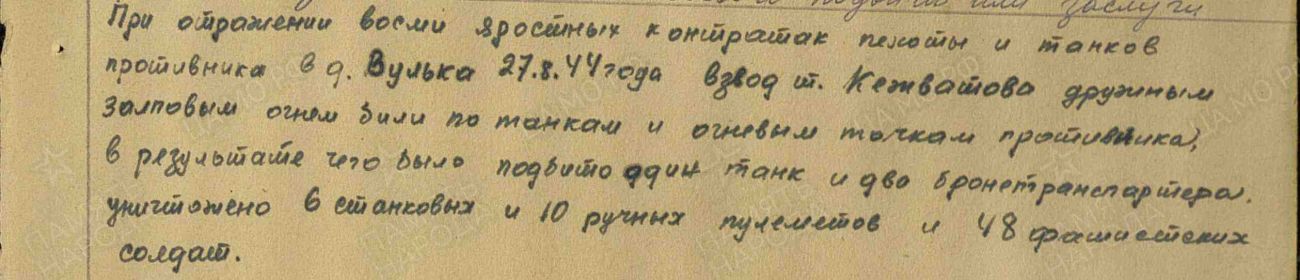 подвига или заслуги
При отражении восми яростных контратак пехоты и танков
противника в д. Вулька 27.8.44 года взвод т. Кежватова дружным
залповым огнем били по танкам и огневым точкам противника,
в результате чего было подбито один танк и два бронетранспартера.
уничтожено 6 станковых и 10 ручных пулеметов и 48 фашистских
солдат.